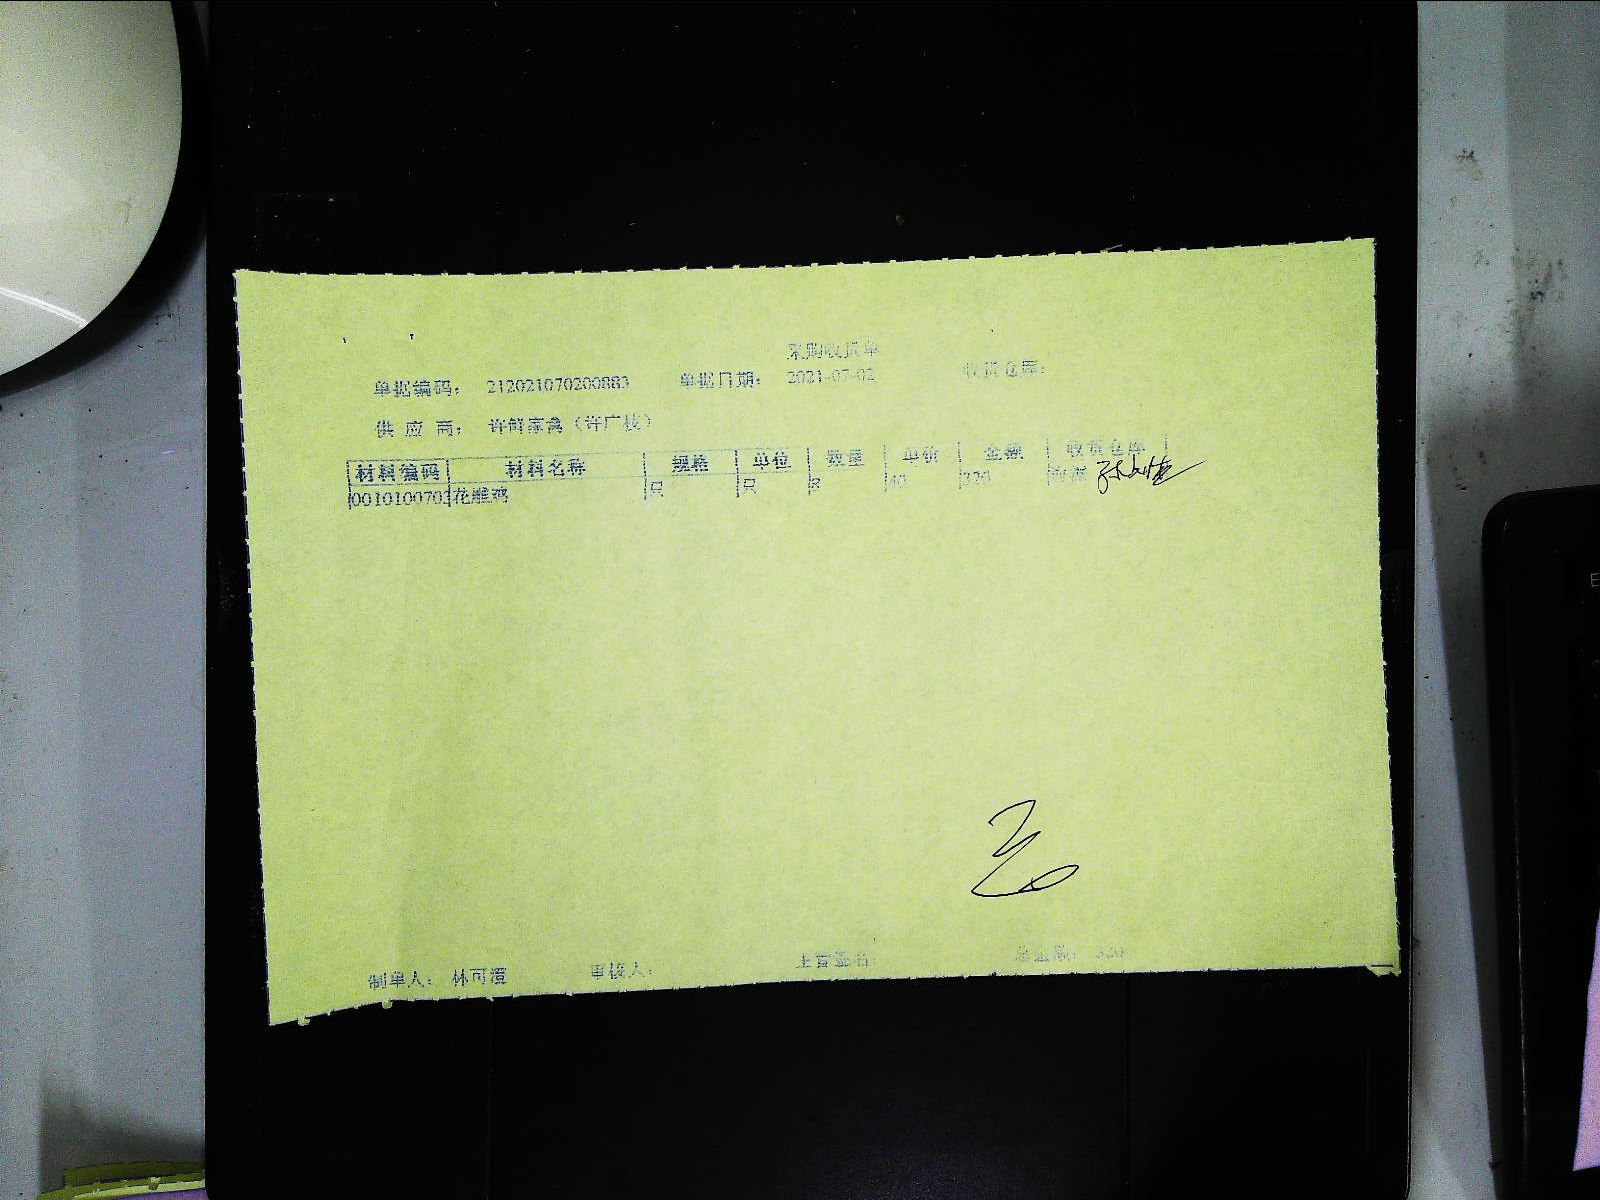 采购收货单
单据编码： 212021070200883 单据日期： 2021-07-02 收货仓库：
供 应 商： 许鲜家禽（许广枝）
材料编码 材料名称 规格 单位 数量 单价 金额 收货仓库
0010100702 花雕鸡 只 只 8 40 320
制单人： 林可澄 审核人： 主管签名： 总金额： 320